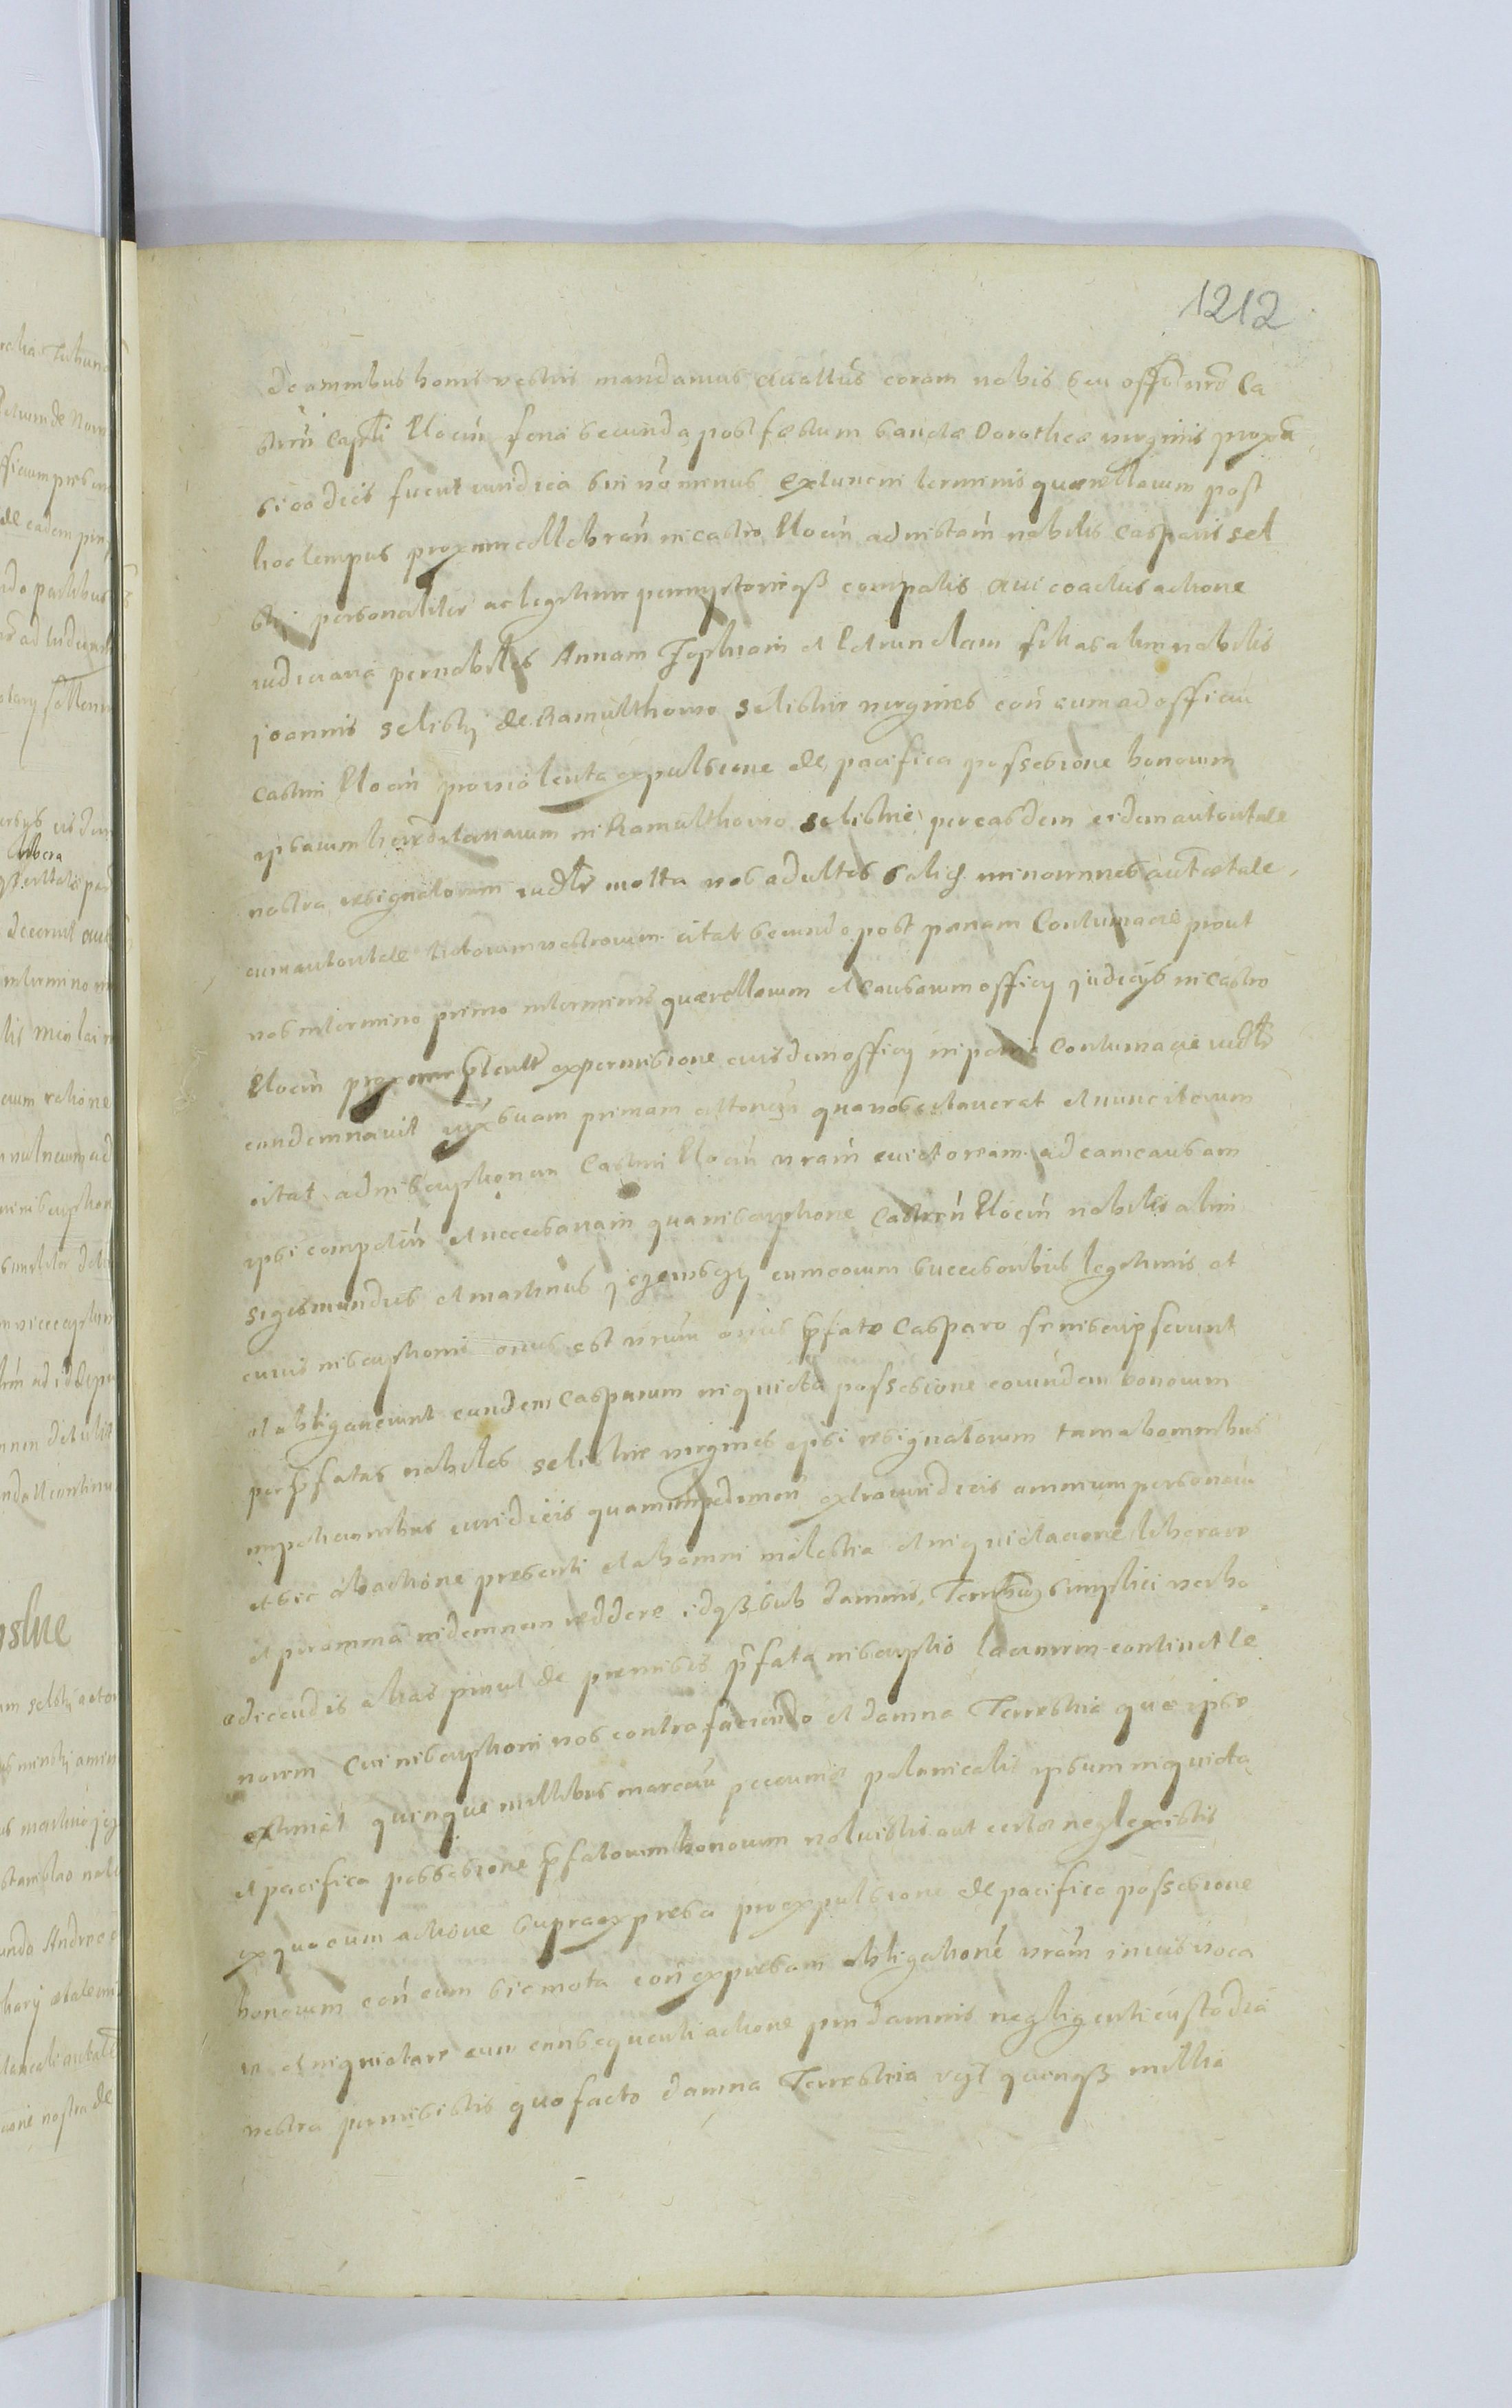 1212
De omnibus bonis vestris mandamus quattus coram nobis seu offo nro Ca
strn̄ Capti Plocen̄ feria secunda post festum sanctae Dorotheae virginis proxā
si eo dies fuerit iuridica sin vō minus extunc in terminis quaerellarum post
hoc tempus proxime cellebran̄ in castro Plocen̄ ad instan̄ nobilis Casparis sel
stij personaliter ac legitime peremptorieqß compatis qui coactus actione
iudiciaria per nobiles Annam Zophiam et Petrunelam filias olim nobilis
joannis selistij de Ramulthowo selistkie virgines con̄ eum ad officiū
castri Plocen̄ pro violenta expulsione de pacifica possessione bonorum
ipsarum hereditariarum in Ramulthowo selistkie per easdem eidem autoritate
nostra resignatorum iudlr motta vos adultos saligs minorennes aut aetate
cum autoritate tutorum vestrorum citat secundo post paenam Contumaciae prout
vos in termino primo in terminis quaerellarum et causarum officij judicijs in Castro
Plocen̄ proxime prteritr ex permissione eiusdem officij in paena Contumaciae iudlr
condemnavit iux suam primam attonem qua vos citaverat et nunc iterum
citat ad inscriptionem Castri Plocen̄ vram̄ evictoream ad eam causam
ipsi competen̄ et necessariam qua inscriptione Castren̄ Plocen̄ nobiles olim
Sigismundus et martinus jezewscy cum eorum successoribus legitimis et
cuius inscriptioni onus est vrum onus p̄fato Casparo se inscripserunt
et obligaverunt eundem Casparum in quieta possessione eorundem bonorum
per p̄fatas nobiles selistkie virgines ipsi resignatorum tam ab omnibus
impeticionibus iuridicis quam impedimen̄ extraiuridicis omnium personarū
et sic ab actione presenti et ab omni molestia et inquietacione liberare
et per omnia indemnem reddere idqß sub damnis Terribus simplici verbo
edicendis alias prout de premissis p̄fata inscriptio lacinim continet te
norem Cui inscriptioni vos contra faciendo et damna Terrestria quae ipse
extimat quinque millibus marcarū pecuniae polonicalis ipsum in quieta
et pacifica possessione p̄fatorum bonorum noluistis aut certae neglexistis
ex quo eum actione supra expressa pro expulsione de pacifica possessione
bonorum con̄ eum sic mota con̄ expressam obligationē vram̄ in ius voca
re et inquietare cum consequenti actione pro damnis negligenti custodia
vestra permisistis quo facto damna Terrestria vijt quinqß millia